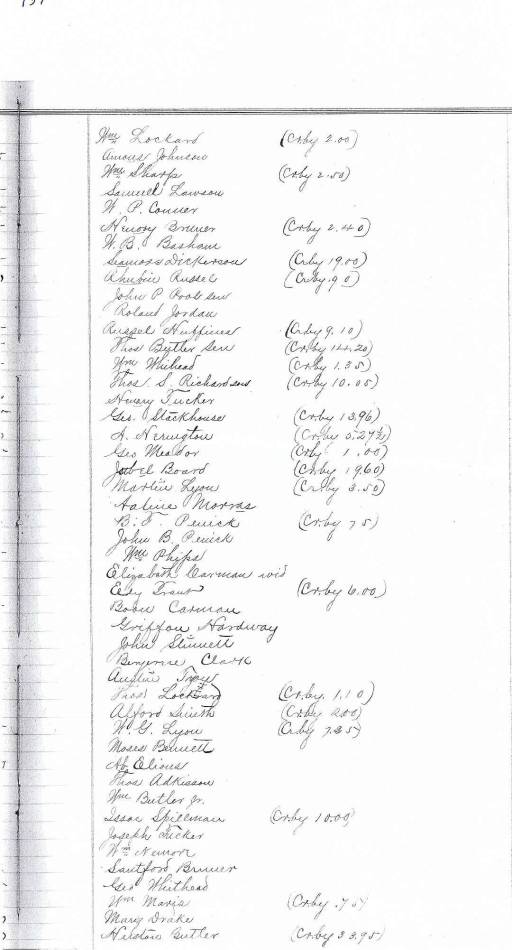 Wm Lockard (Cr by 2.00)
Amous Johnson
Wm Sharp (Cr by 2.50)
Samuel Lawson
W. P. Conner
Henory Bruner (Cr by 2.40)
W. B. Basham
Dickerson (Cr by 19.00)
Russel (Cr by .90)
John P
Roland Jordan
Russel Huffines (Cr by 9.10)
Thos Butler Sen (Cr by 14.20)
Wm Whithead (Cr by 1.35)
Thos. S. Richardson (Cr by 10.05)
Henery Tucker
Geo. Stackhouse (Cr by 13.96)
A. Nerington (Cr by 5.27½)
Geo Meador (Cr by 1.00)
Board (Cr by 19.60)
Martin Lyon (Cr by 3.50)
B. F. Penick (Cr by 75)
John B. Penick
Wm Phips
Elizabeth Carman wid
(Cr by 6.00)
Carman
Griffon Hardway
John Stinnett
Clark
Austin
Thos Lockard (Cr by 1.10)
Afford Smith (Cr by 200)
W. G. Lyon (Cr by 7.35)
Moses Bennett
Thos Adkisson
Wm Butler Jr.
Isaac Spillman (Cr by 10.00)
Joseph Tucker
Wm
Santford Bruner
Geo Whithead
Wm (Cr by
Mary Drake
Butler (Cr by 33.95)